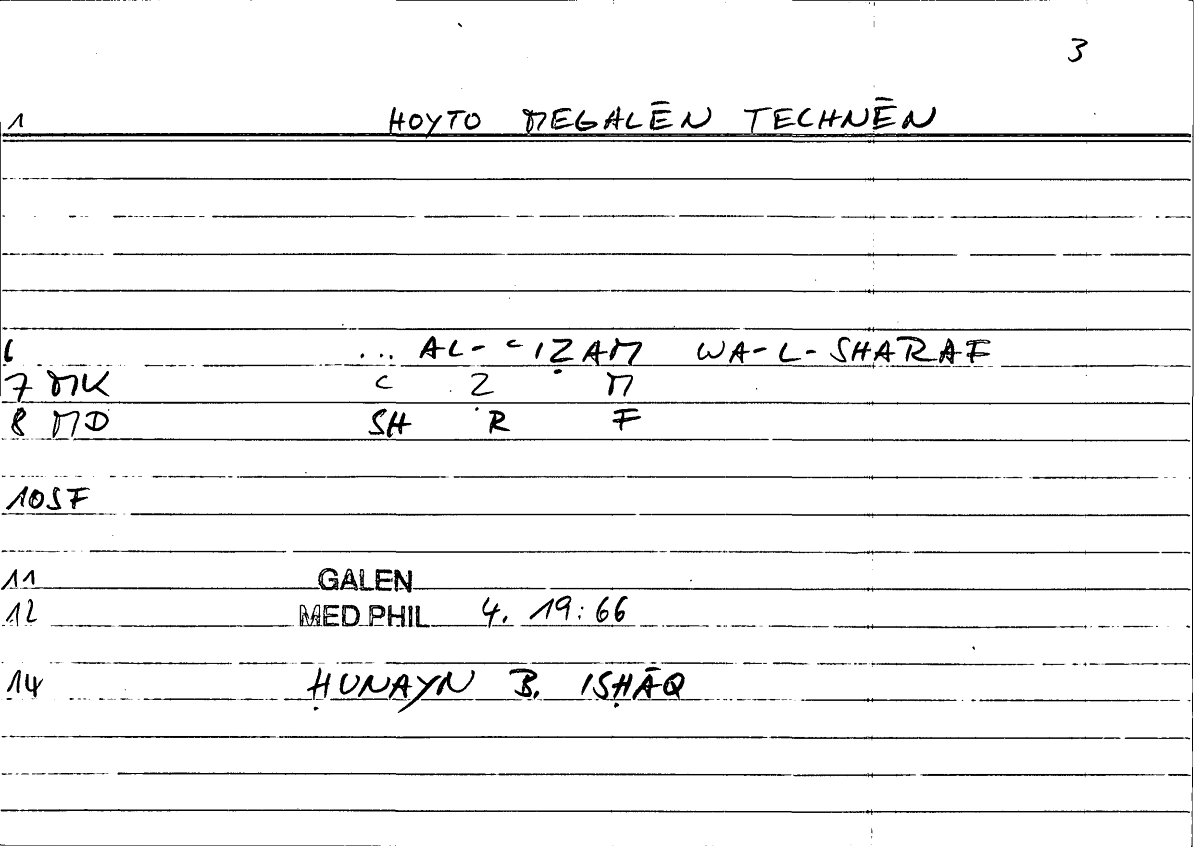 3
1 HOYTO MEGALĒN TECHNĒN
6 ... AL-ʿIẒAM WA-L-SHARAF
7 MK ʿ Ẓ M
8 MD SH R F
10 SF
11 GALEN
12 MED PHIL 4. 19:66
14 ḤUNAYN B. ISḤĀQ